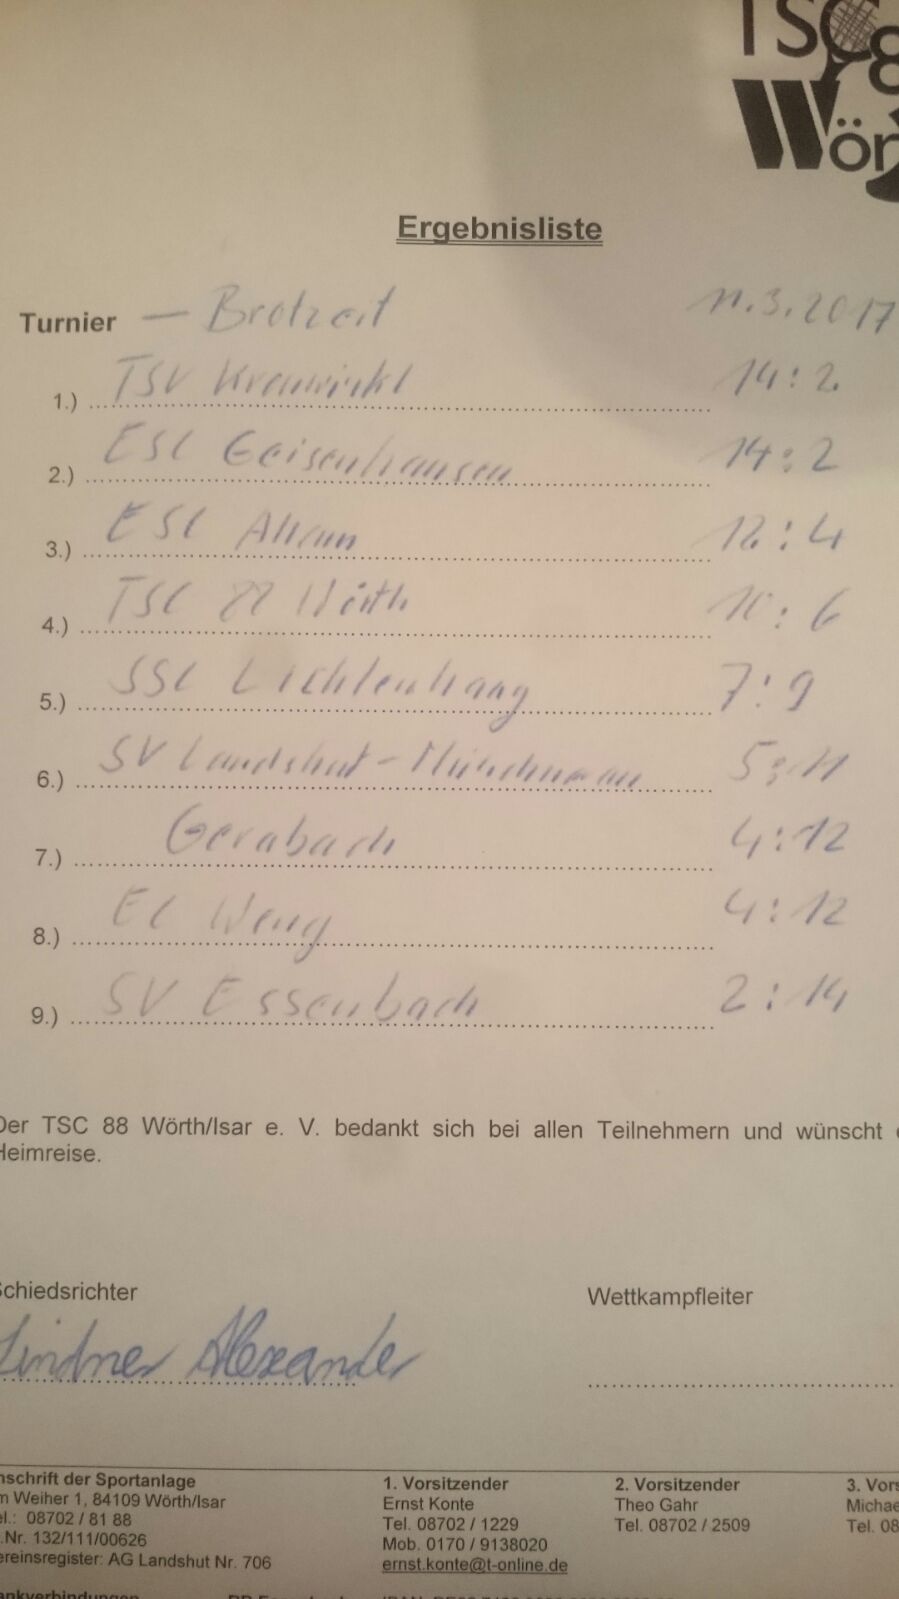 TSC 8
Wör
Ergebnisliste
Turnier — Brotzeit 11.3.2017
1.) TSV Kronwinkl 14:2
2.) ESC Geisenhausen 14:2
3.) ESC Altraun 12:4
4.) TSC 88 Wörth 10:6
5.) SSC Lichtenhaag 7:9
6.) SV Landshut-Münchnerau 5:11
7.) Gerabach 4:12
8.) EC Weng 4:12
9.) SV Essenbach 2:14
Der TSC 88 Wörth/Isar e. V. bedankt sich bei allen Teilnehmern und wünscht
Heimreise.
Schiedsrichter Wettkampfleiter
Lindner Alexander
nschrift der Sportanlage 1. Vorsitzender 2. Vorsitzender 3. Vors
m Weiher 1, 84109 Wörth/Isar Ernst Konte Theo Gahr Michae
el.: 08702 / 81 88 Tel. 08702 / 1229 Tel. 08702 / 2509 Tel. 08
.Nr. 132/111/00626 Mob. 0170 / 9138020
ereinsregister: AG Landshut Nr. 706 ernst.konte@t-online.de